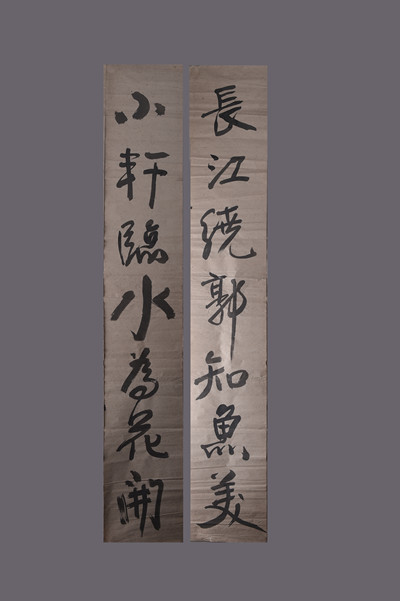 長江繞郭知魚美
小軒臨水為花開